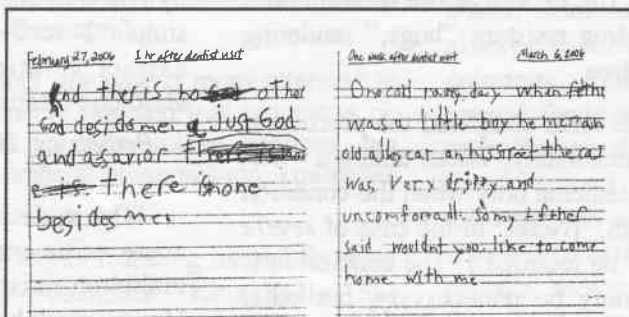 February 27, 2006 1 hr after dentist visit
And there is no other
God desides me, a Just God
and a savior
there is none
besides me.
One week after dentist visit March 6, 2006
One cold rainy day when
was a little boy he met an
old alley cat on his street the cat
was Very dripty and
uncomfortall. so my father
said wouldnt you like to come
home with me